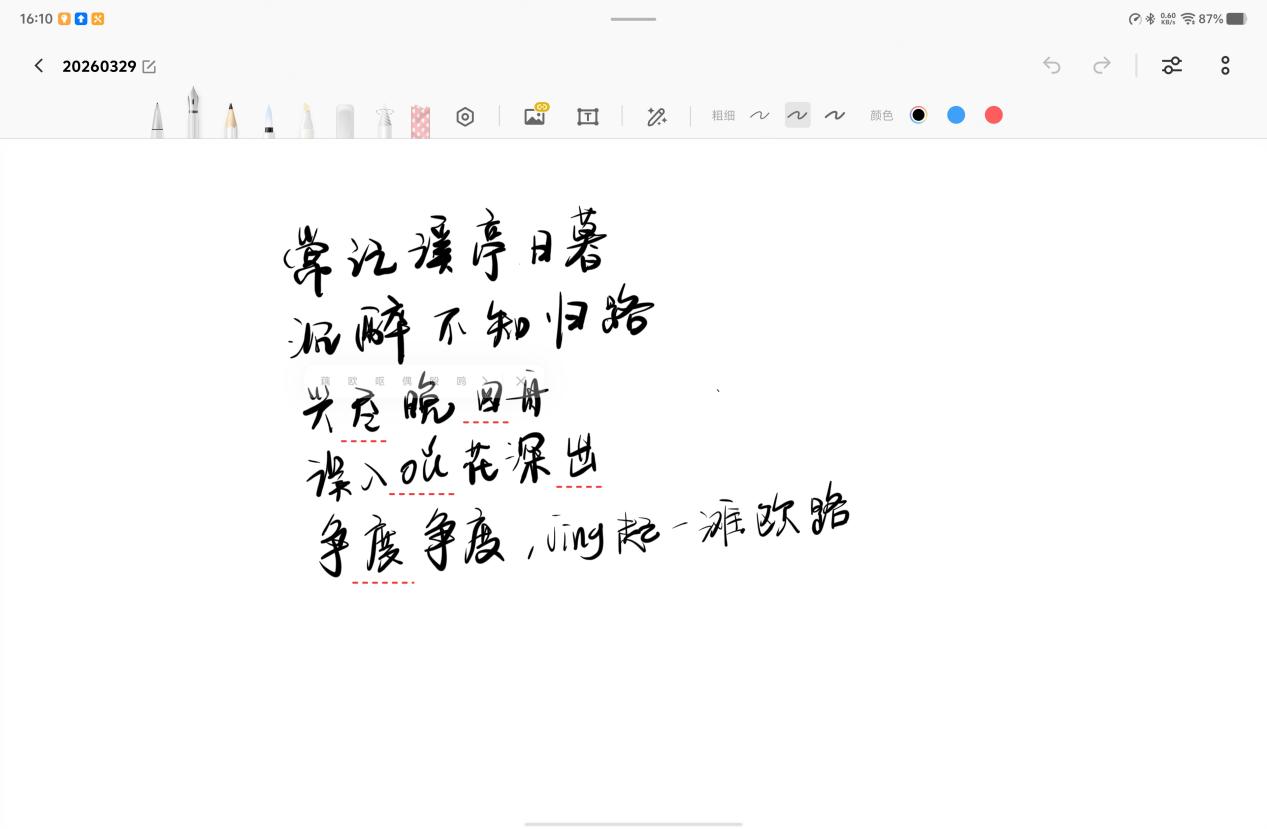 16:10 0.60 KB/s 87%
20260329
粗细 颜色
常记溪亭日暮
沉醉不知归路
藕 欧 呕 偶 殴 鸥
兴尽晚回舟
误入ou花深出
争度争度,Jing起一滩欧路